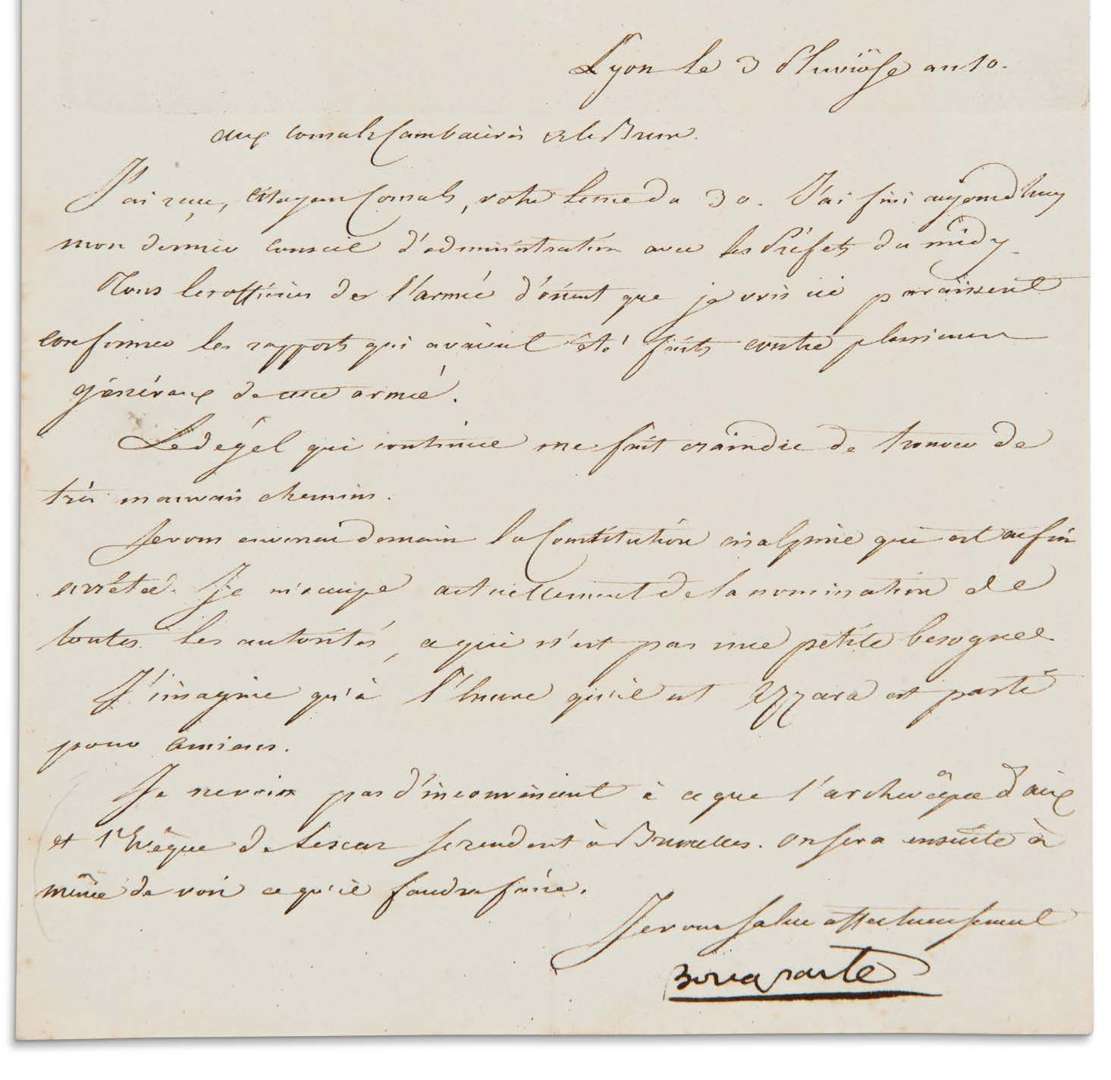 Lyon le 3 Pluviôse an 10.
aux Consuls Cambacérès et le Brun.
J'ai reçu, Citoyens Consuls, votre lettre du 30. J'ai fini aujourd'huy
mon dernier conseil d'administration avec les Préfets du midy
Tous les officiers de l'armée d'orient que je vois ici paraissent
confirmer les rapports qui avaient été faits contre plusieurs
généraux de cette armée.
Le dégel qui continue me fait craindre de trouver de
très mauvais chemins.
Je vous enverrai demain la Constitution cisalpine qui est enfin
arrêtée. Je m'occupe actuellement de la nomination de
toutes les autorités, ce qui n'est pas une petite besogne
J'imagine qu'à l'heure qu'il est Azzara est parti
pour amiens.
Je ne vois pas d'inconvénient à ce que l'archevêque d'aix
et l'Evêque de Lescar se rendent à Bruxelles. on sera ensuite à
même de voir ce qu'il faudra faire.
Je vous salue affectueusement
Bonaparte